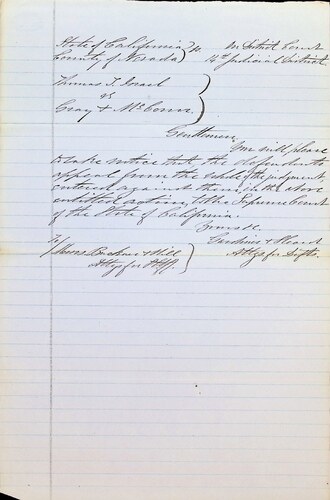 State of California } ss. In District Court
County of Nevada 14th Judicial District
Thomas T. Israel
vs
Gray &
Gentlemen,
You will please
to take notice that the defendants
appeal from the whole of the judgment
entered against them in the above
entitled action, to the Supreme Court
of the State of California.
Yours &c.
To
Attys for Dfts.
Messrs & Hill
Attys for Plff.